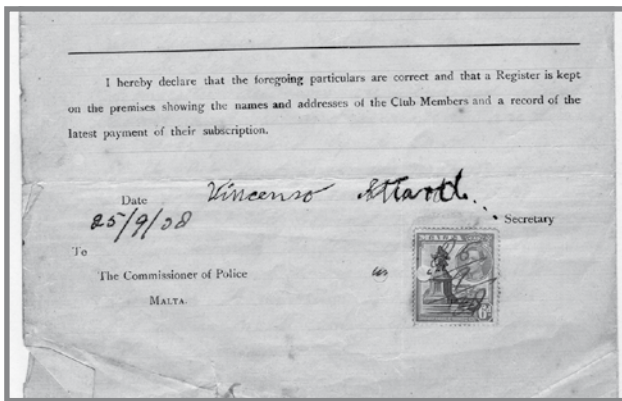 I hereby declare that the foregoing particulars are correct and that a Register is kept
on the premises showing the names and addresses of the Club Members and a record of the
latest payment of their subscription.
Date Vincenso Attard
25/9/38 Secretary
To
The Commissioner of Police
MALTA.